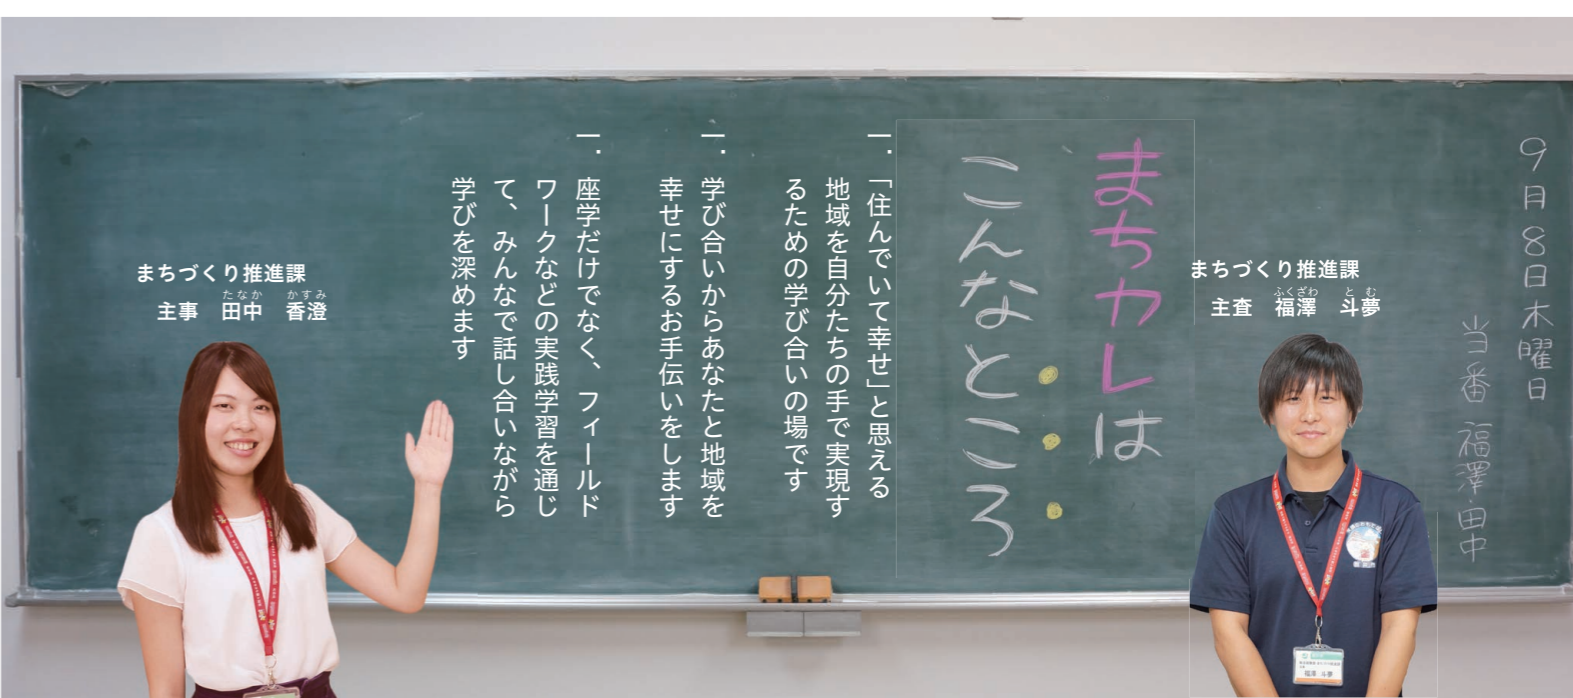 9月8日木曜日
当番 福澤・田中
まちカレは
こんなところ
一．「住んでいて幸せ」と思える
地域を自分たちの手で実現す
るための学び合いの場です
一．学び合いからあなたと地域を
幸せにするお手伝いをします
一．座学だけでなく、フィールド
ワークなどの実践学習を通じ
て、みんなで話し合いながら
学びを深めます
まちづくり推進課
ふくざわ と む
主査 福澤 斗夢
まちづくり推進課
たなか かすみ
主事 田中 香澄
福澤 斗夢